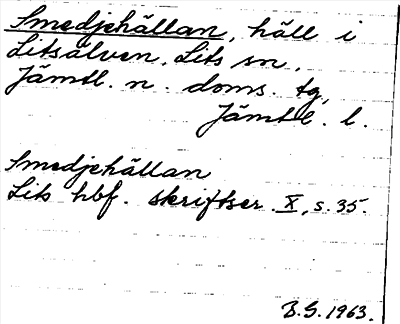 Smedjehällan, häll i
Litsälven. Lits sn.
Jämtl. n. doms. tg,
Jämtl. l.
Smedjehällan
Lits hbf. skriftser. X, s. 35.
B.G. 1963.